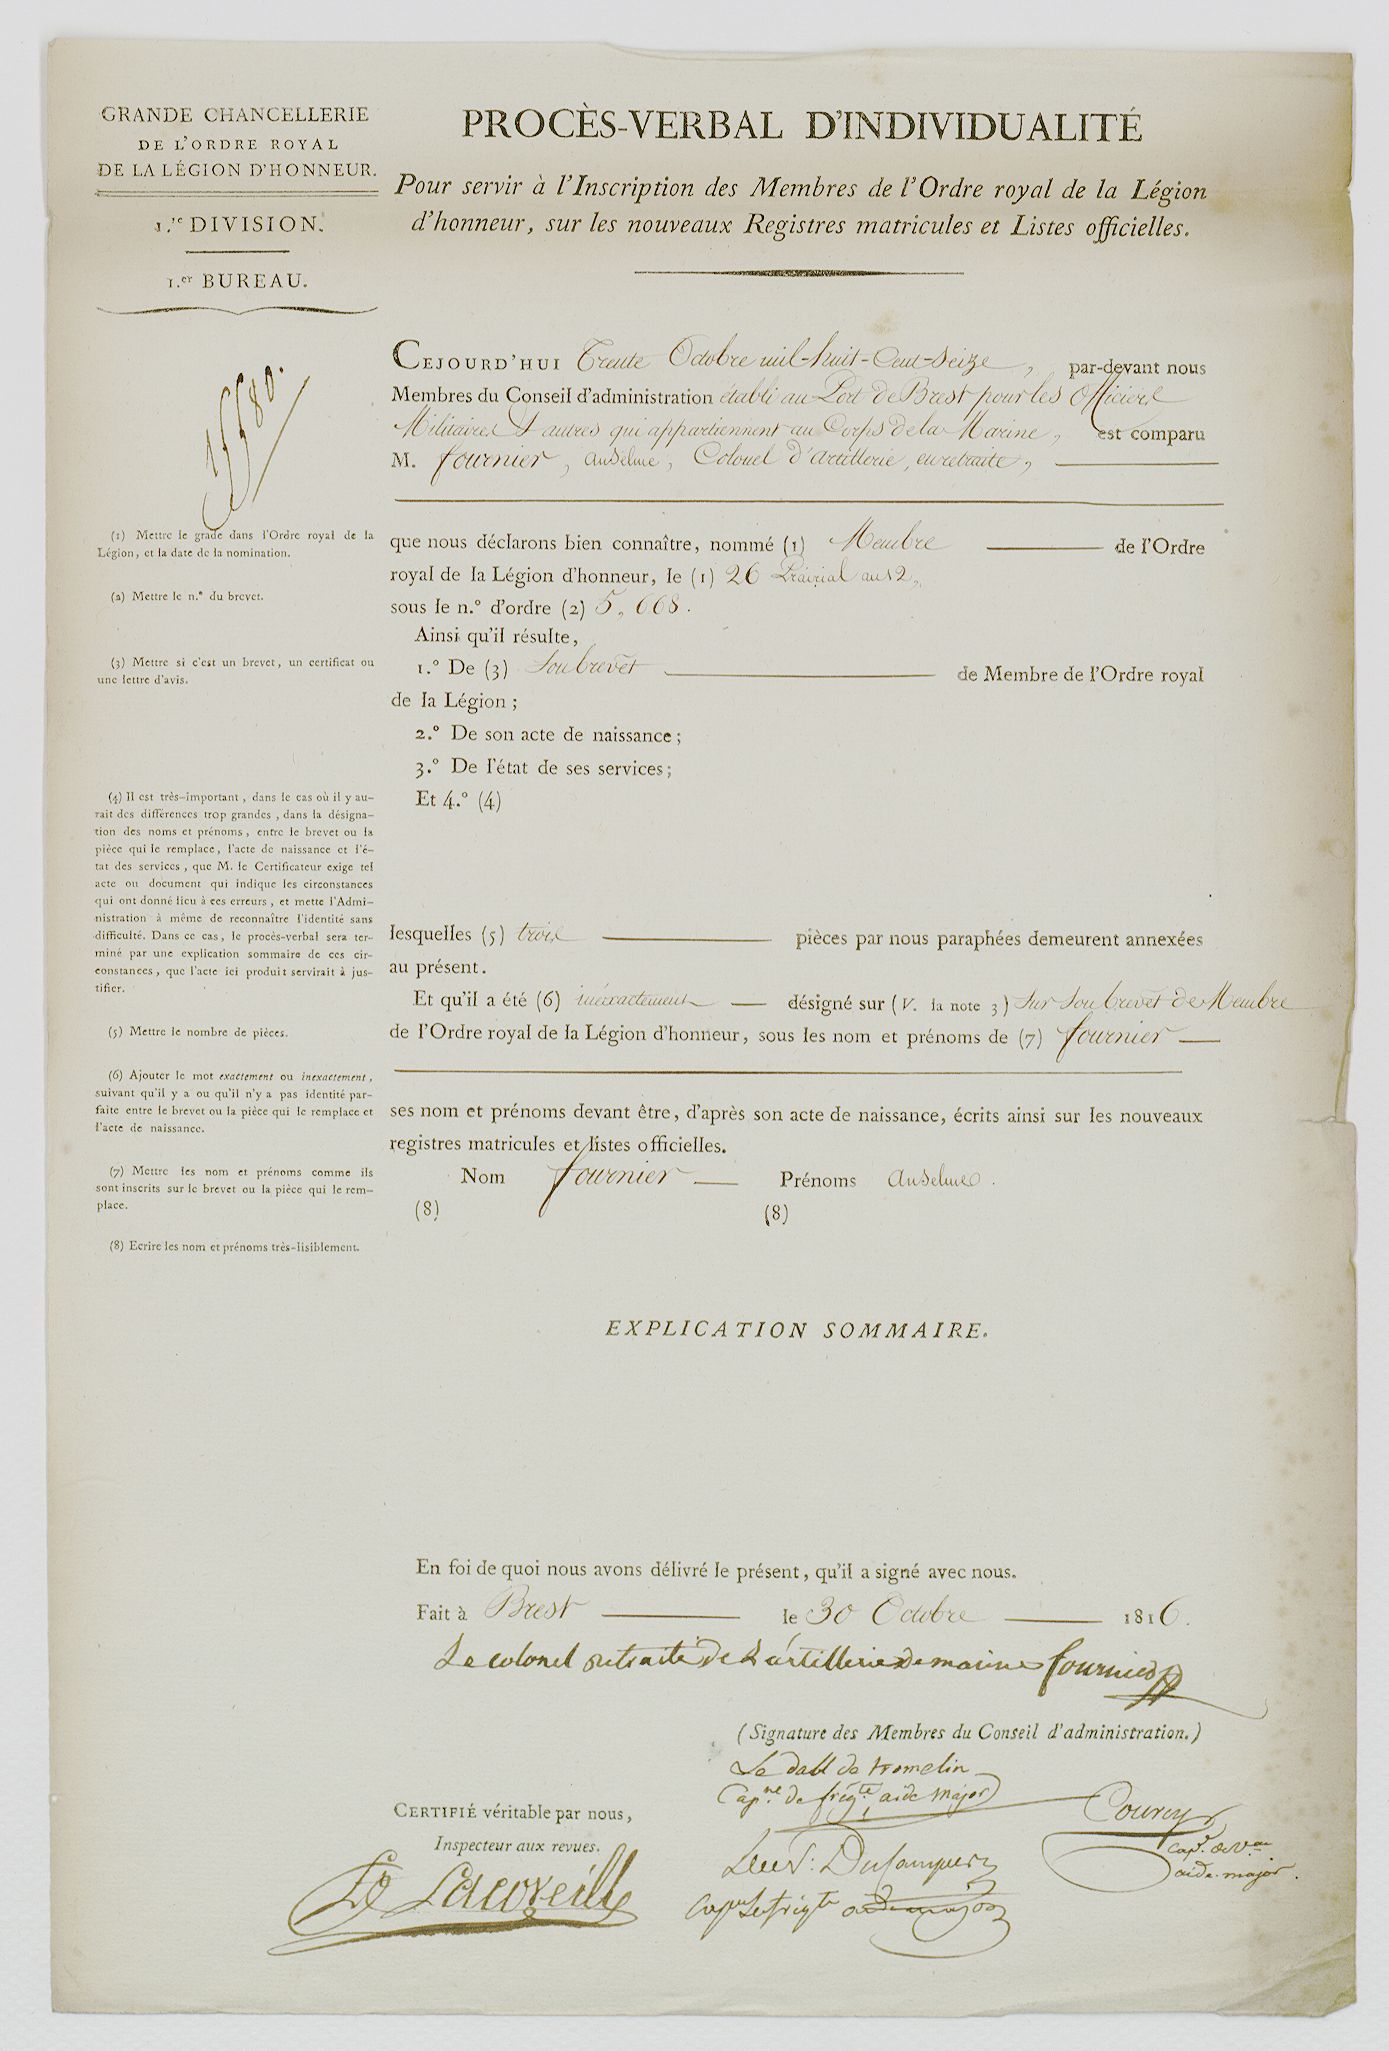 GRANDE CHANCELLERIE
DE L'ORDRE ROYAL
DE LA LÉGION D'HONNEUR.
1.re DIVISION.
1.er BUREAU.
PROCÈS-VERBAL D'INDIVIDUALITÉ
Pour servir à l'Inscription des Membres de l'Ordre royal de la Légion
d'honneur, sur les nouveaux Registres matricules et Listes officielles.
CEJOURD'HUI Trente Octobre mil-huit-Cent-Seize, par-devant nous
Membres du Conseil d'administration établi au Port de Brest pour les Officiers
Militaires & autres qui appartiennent au Corps de la Marine, est comparu
M. fournier, anselme, Colonel d'artillerie, en retraite,
que nous déclarons bien connaître, nommé (1) Membre de l'Ordre
royal de la Légion d'honneur, le (1) 26 Prairial an 12,
sous le n.° d'ordre (2) 5,668.
Ainsi qu'il résulte,
1.° De (3) Son brevet de Membre de l'Ordre royal
de la Légion ;
2.° De son acte de naissance ;
3.° De l'état de ses services ;
Et 4.° (4)
lesquelles (5) trois pièces par nous paraphées demeurent annexées
au présent.
Et qu'il a été (6) inexactement désigné sur (V. la note 3) Sur Son brevet de Membre
de l'Ordre royal de la Légion d'honneur, sous les nom et prénoms de (7) fournier
ses nom et prénoms devant être, d'après son acte de naissance, écrits ainsi sur les nouveaux
registres matricules et listes officielles.
Nom fournier Prénoms anselme.
(8) (8)
(1) Mettre le grade dans l'Ordre royal de la
Légion, et la date de la nomination.
(2) Mettre le n.° du brevet.
(3) Mettre si c'est un brevet, un certificat ou
une lettre d'avis.
(4) Il est très-important, dans le cas où il y au-
rait des différences trop grandes, dans la désigna-
tion des noms et prénoms, entre le brevet ou la
pièce qui le remplace, l'acte de naissance et l'é-
tat des services, que M. le Certificateur exige tel
acte ou document qui indique les circonstances
qui ont donné lieu à ces erreurs, et mette l'Admi-
nistration à même de reconnaître l'identité sans
difficulté. Dans ce cas, le procès-verbal sera ter-
miné par une explication sommaire de ces cir-
constances, que l'acte ici produit servirait à jus-
tifier.
(5) Mettre le nombre de pièces.
(6) Ajouter le mot exactement ou inexactement,
suivant qu'il y a ou qu'il n'y a pas identité par-
faite entre le brevet ou la pièce qui le remplace et
l'acte de naissance.
(7) Mettre les nom et prénoms comme ils
sont inscrits sur le brevet ou la pièce qui le rem-
place.
(8) Ecrire les nom et prénoms très-lisiblement.
EXPLICATION SOMMAIRE.
En foi de quoi nous avons délivré le présent, qu'il a signé avec nous.
Fait à Brest le 30 Octobre 1816.
Le colonel retraité de L'artillerie de marine fournier
(Signature des Membres du Conseil d'administration.)
Le dall de tromelin
Cap.ne de frég.te aide major
Courcy
Cap.e de V.au
aide-major.
cap.ne de frég.te aide major
CERTIFIÉ véritable par nous,
Inspecteur aux revues.